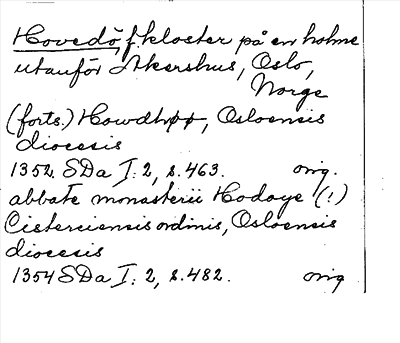 Hovedö, f. kloster på en holme
utanför Akershus, Oslo,
Norge
(forts.) Howdhøø, Osloensis
diocesis
1352 SDa I: 2, s. 463. orig.
abbate monasterii Hodaye (!)
Cisterciensis ordinis, Osloensis
diocesis
1354 SDa I: 2, s. 482. orig